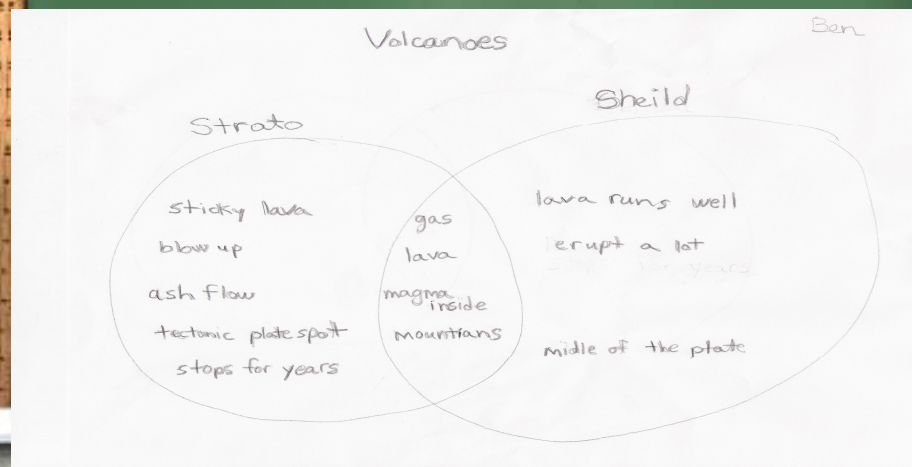 Ben
Volcanoes
Sheild
Strato
sticky lava
blow up
ash flow
tectonic plate spott
stops for years
gas
lava
magma
inside
mountians
lava runs well
erupt a lot
years
midle of the plate